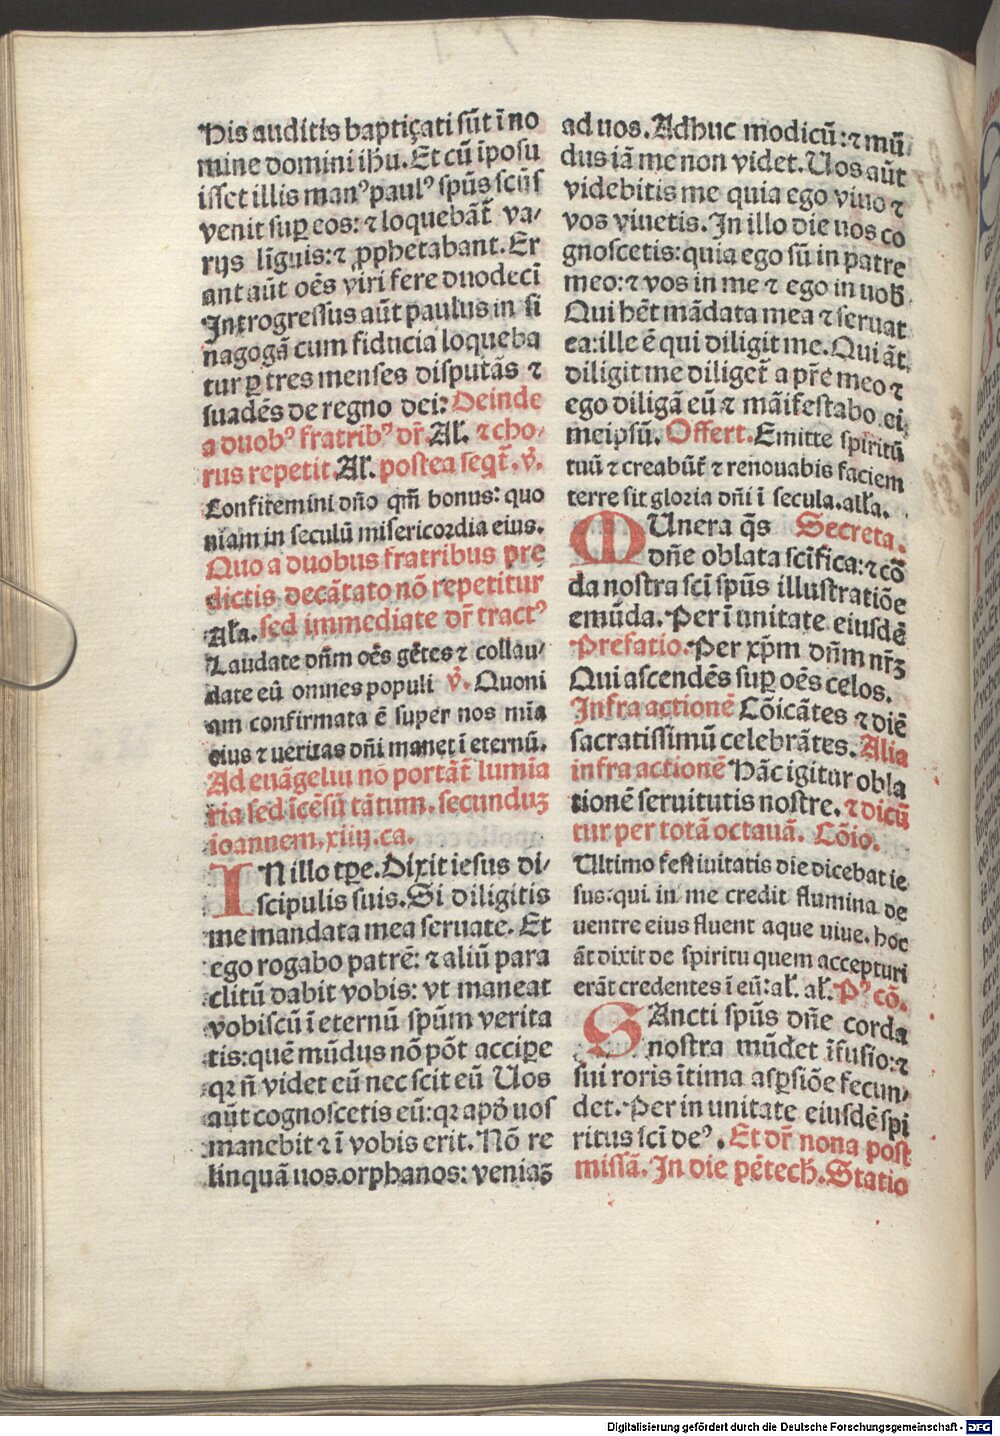 His auditis baptiçati sūt ī no
mine domini ihū. Et cū īposu
isset illis manꝰ paulꝰ spūs scūs
venit suꝑ eos: ⁊ loquebāt᷑ va/
rijs līguis: ⁊ ꝓphetabant. Er
ant aūt oēs viri fere duodecī
Introgressus aūt paulus in si
nagogā cum fiducia loqueba
tur ꝑ tres menses disputās ⁊
suadēs de regno dei: Deinde
a duobꝰ fratribꝰ dr̄. Al̄. ⁊ cho/
rus repetit. Al̄. postea seqt᷑. v̄.
Confitemini dño qm̄ bonus: quo
niam in seculū misericordia eius.
Quo a duobus fratribus pre
dictis decātato nō repetitur
Al̄a. sed immediate dr̄ tractꝰ
Laudate dn̄m oēs gētes ⁊ collau/
date eū omnes populi v̄. Quoni
am confirmata ē super nos mīa
eius ⁊ ueritas dn̄i manet ī eternū.
Ad euāgeliū nō portāt᷑ lumīa
ria sed īcēsū tātum. secunduꝫ
ioannem. xiiij. ca.
IN illo tꝑe. Dixit iesus di/
scipulis suis. Si diligitis
me mandata mea seruate. Et
ego rogabo patrē: ⁊ aliū para
clitū dabit vobis: vt maneat
vobiscū ī eternū spūm verita
tis: quē mūdus nō pōt acciꝑe
qꝛ n̄ videt eū nec scit eū Uos
aūt cognoscetis eū: qꝛ apđ uos
manebit ⁊ ī vobis erit. Nō re
linquā uos orphanos: veniaꝫ
ad uos. Adhuc modicū: ⁊ mū
dus iā me non videt. Uos aūt
videbitis me quia ego viuo ⁊
vos viuetis. In illo die uos co
gnoscetis: quia ego sū in patre
meo: ⁊ vos in me ⁊ ego in uob̄.
Qui hēt mādata mea ⁊ seruat
ea: ille ē qui diligit me. Qui āt
diligit me diliget᷑ a pr̄e meo ⁊
ego diligā eū ⁊ māifestabo ei
meipsū. Offert. Emitte spiritū
tuū ⁊ creabūt᷑ ⁊ renouabis faciem
terre sit gloria dn̄i ī secula. all̄a.
MUnera q̄s Secreta.
dn̄e oblata scīfica: ⁊ co᷑
da nostra scī spūs illustratiōe
emūda. Per ī unitate eiusdē
Prefatio. Per xp̄m dn̄m nr̄ꝫ
Qui ascendēs suꝑ oēs celos.
Infra actionē Cōicātes ⁊ diē
sacratissimū celebrātes. Alia
infra actionē Hāc igitur obla
tionē seruitutis nostre. ⁊ dicū
tur per totā octauā. Cōio.
Ultimo festiuitatis die dicebat ie
sus: qui in me credit flumina de
uentre eius fluent aque uiue. hoc
āt dixit de spiritu quem accepturi
erāt credentes ī eū: al̄. al̄. Pꝰ cō.
SAncti spūs dn̄e corda
nostra mūdet īfusio: ⁊
sui roris ītima aspsiōe fecun/
det. Per in unitate eiusdē spi
ritus scī deꝰ. Et dr̄ nona post
missā. In die pētech̄. Statio
Digitalisierung gefördert durch die Deutsche Forschungsgemeinschaft - DFG